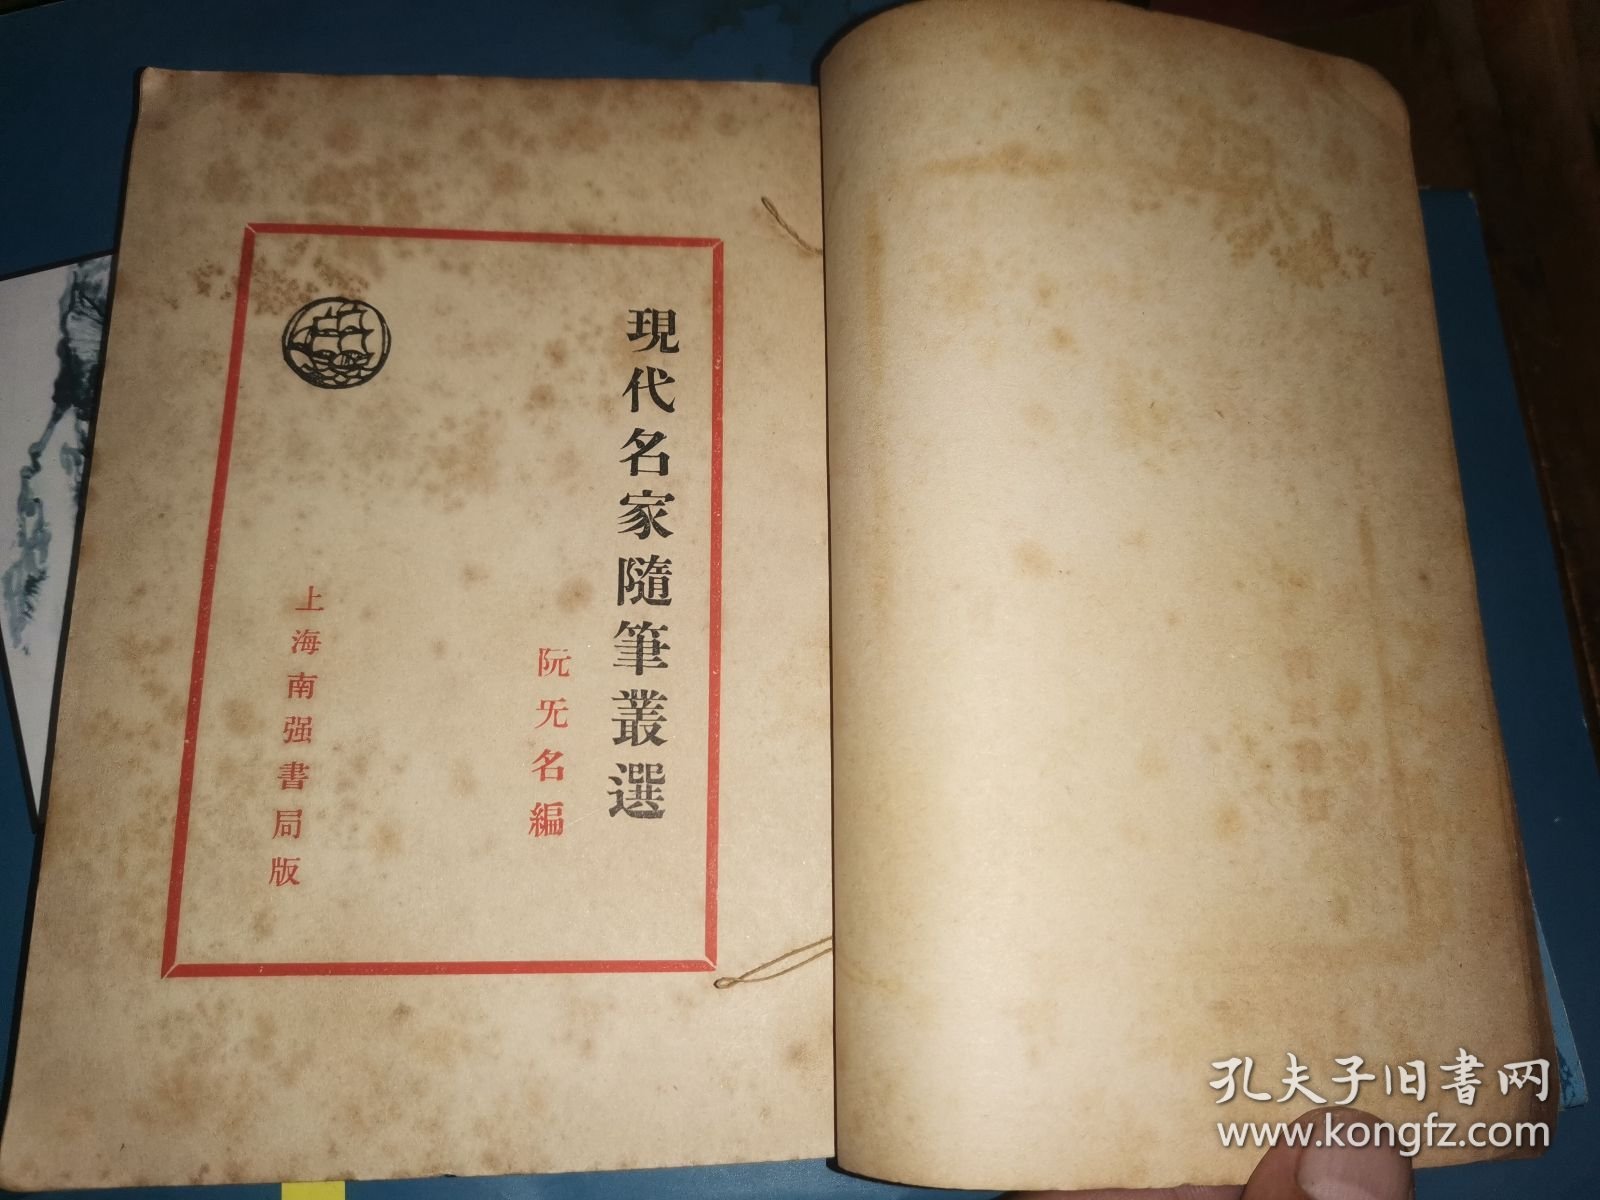 現代名家隨筆叢選
阮无名編
上海南强書局版
孔夫子旧书网
www.kongfz.com